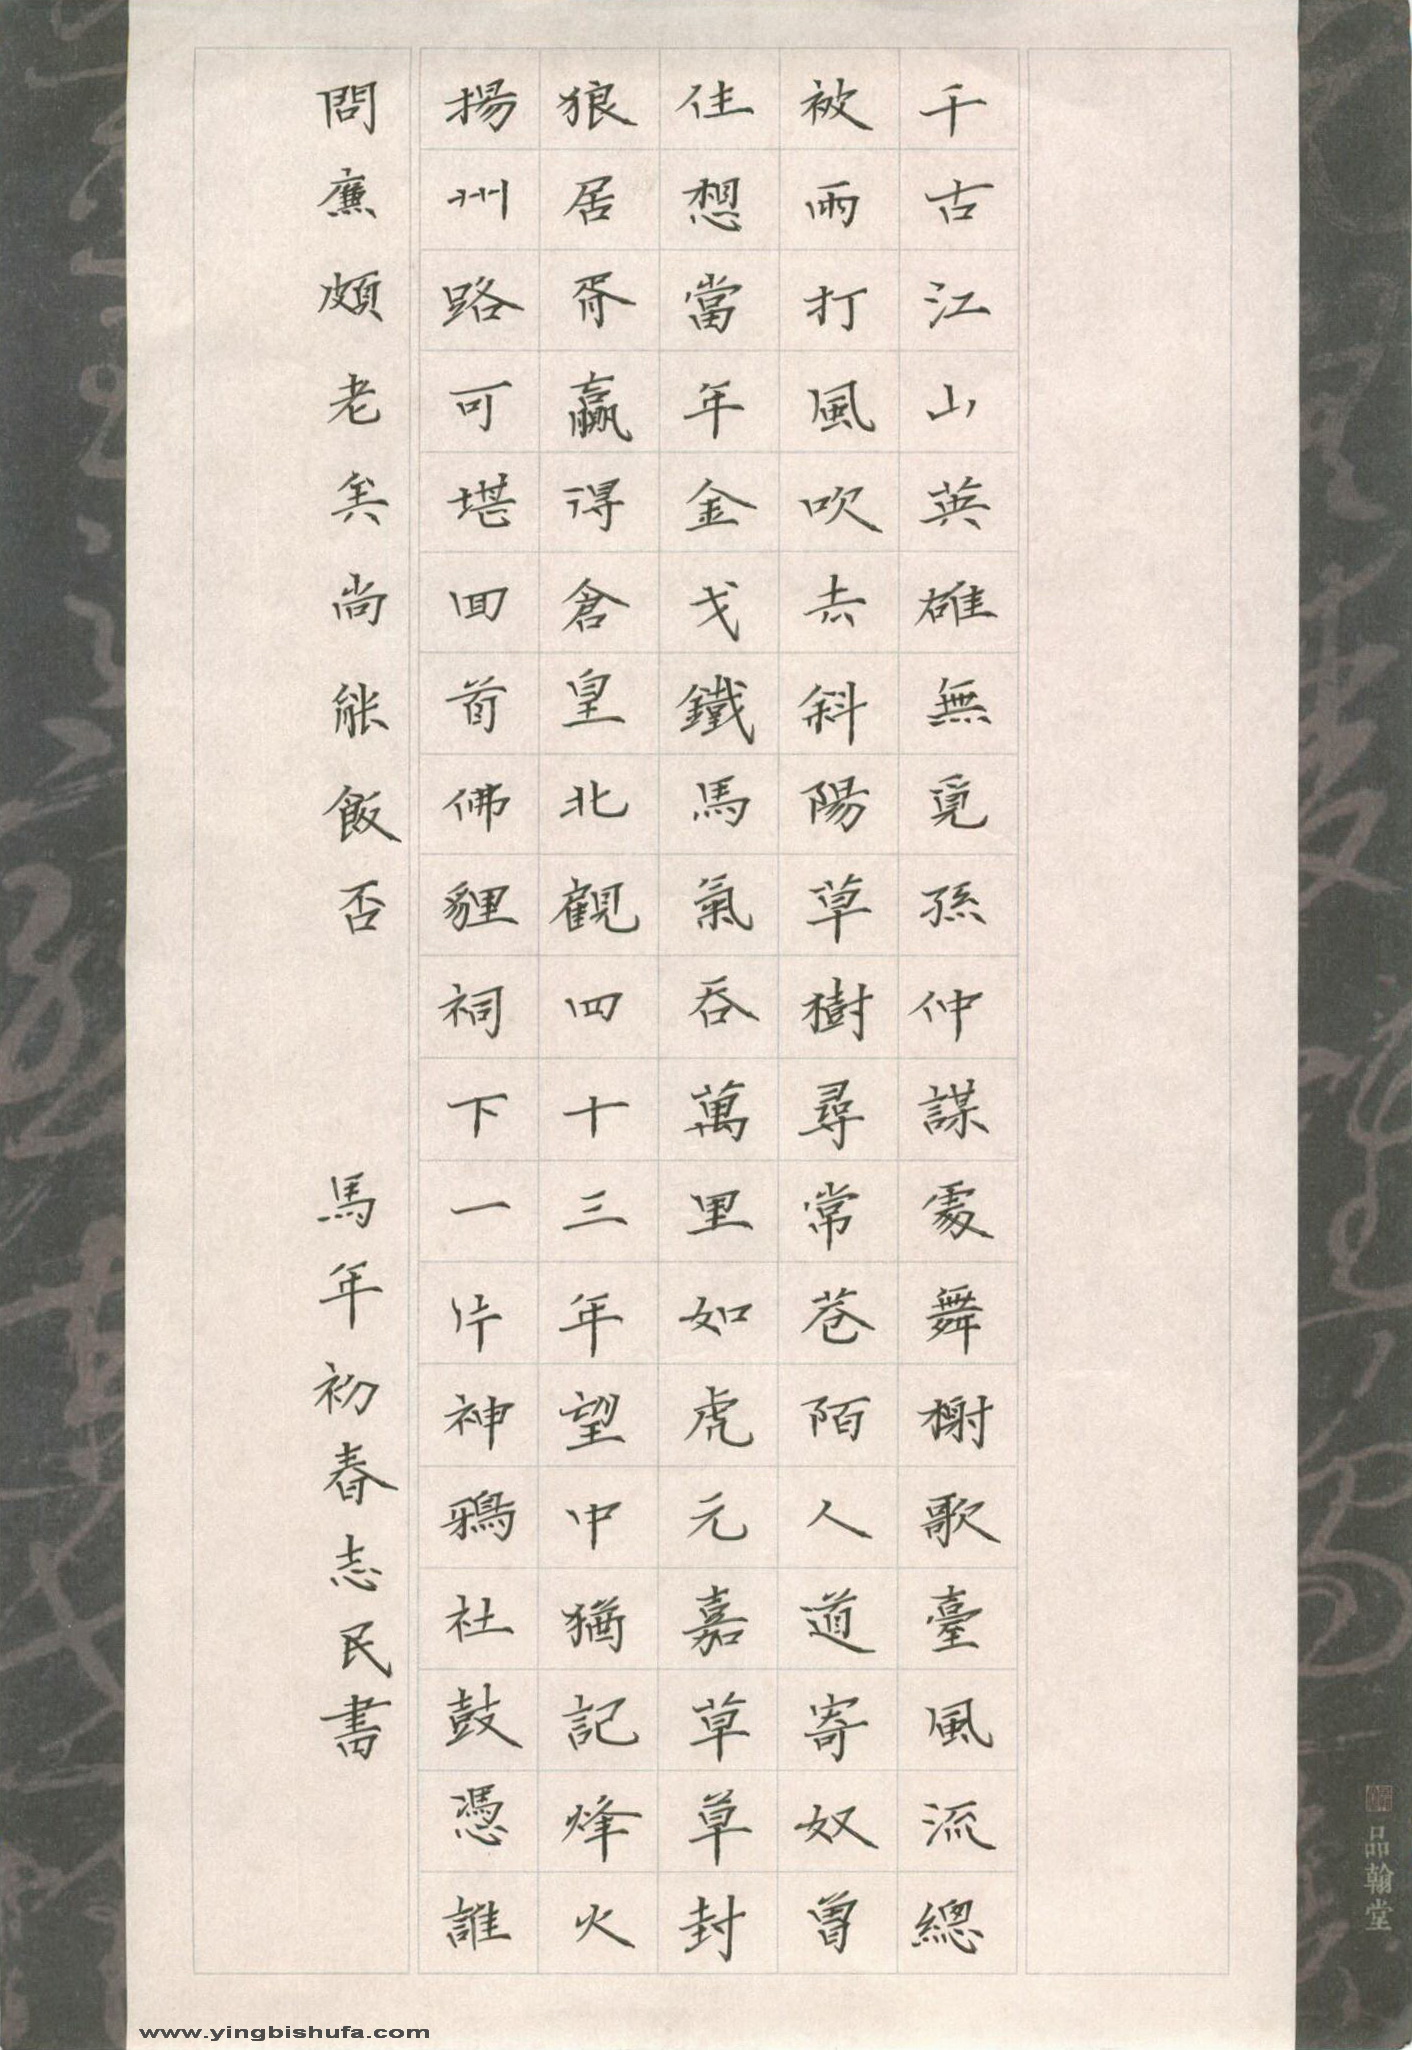 千古江山英雄無覓孫仲謀處舞榭歌臺風流總
被雨打風吹去斜陽草樹尋常巷陌人道寄奴曾
住想當年金戈鐵馬氣吞萬里如虎元嘉草草封
狼居胥贏得倉皇北觀四十三年望中猶記烽火
揚州路可堪回首佛貍祠下一片神鴉社鼓憑誰
問廉頗老矣尚能飯否
馬年初春志民書
品翰堂
www.yingbishufa.com